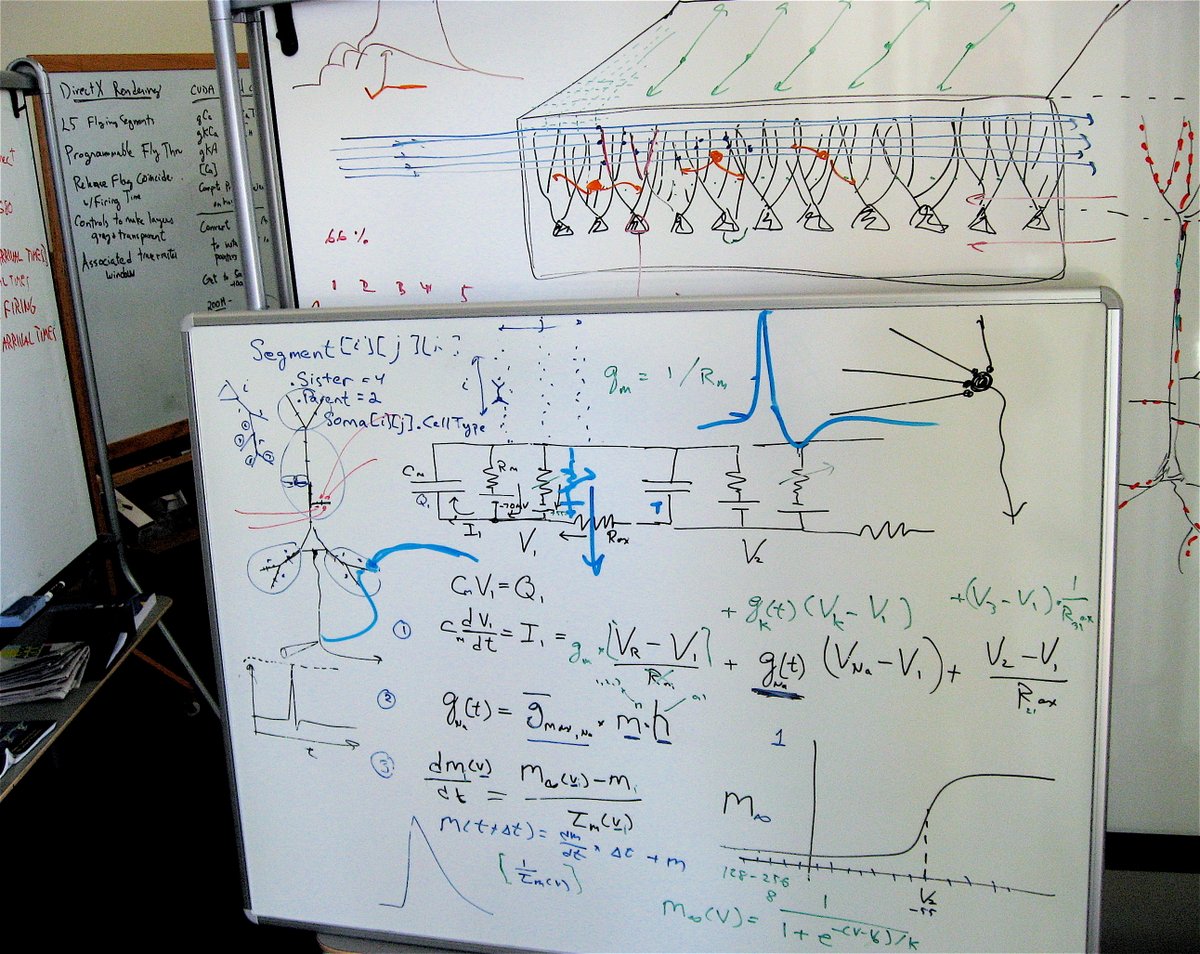 DirectX Rendering
L5 Flying Segments
Programmable Fly Thru
Release Flag Coincide
w/Firing Time
Controls to make layers
gray + transparent
Associated
window
CUDA
gCa
gKCa
gKA
[Ca]
Convert
to
Get to
200M-
ARRIVAL TIMES]
FIRING
ARRIVAL TIMES
66%
1 2 3 4 5
Segment[i][j][
.Sister = 4
.Parent = 2
Soma[i][j].CellType
i
j
i
g_m = 1/R_m
C_m
Q_1
R_m
-70mV
I_1
V_1
R_ax
V_2
C_m V_1 = Q_1
+ g_K(t) (V_K - V_1) + (V_3 - V_1) · 1/R_31ax
① C_m dV_1/dt = I_1 = g_m × [V_R - V_1]/R_m + g_Na(t) (V_Na - V_1) + (V_2 - V_1)/R_21ax
② g_Na(t) = g_max,Na × m · h
③ dm_1(v)/dt = (m_∞(v_1) - m_1)/τ_m(v_1)
m(t+Δt) = dm/dt × Δt + m
[1/τ_m(v)]
t
1
m_∞
128-256
8
V_½
-55
m_∞(V) = 1/(1 + e^-(V-V_½)/k)